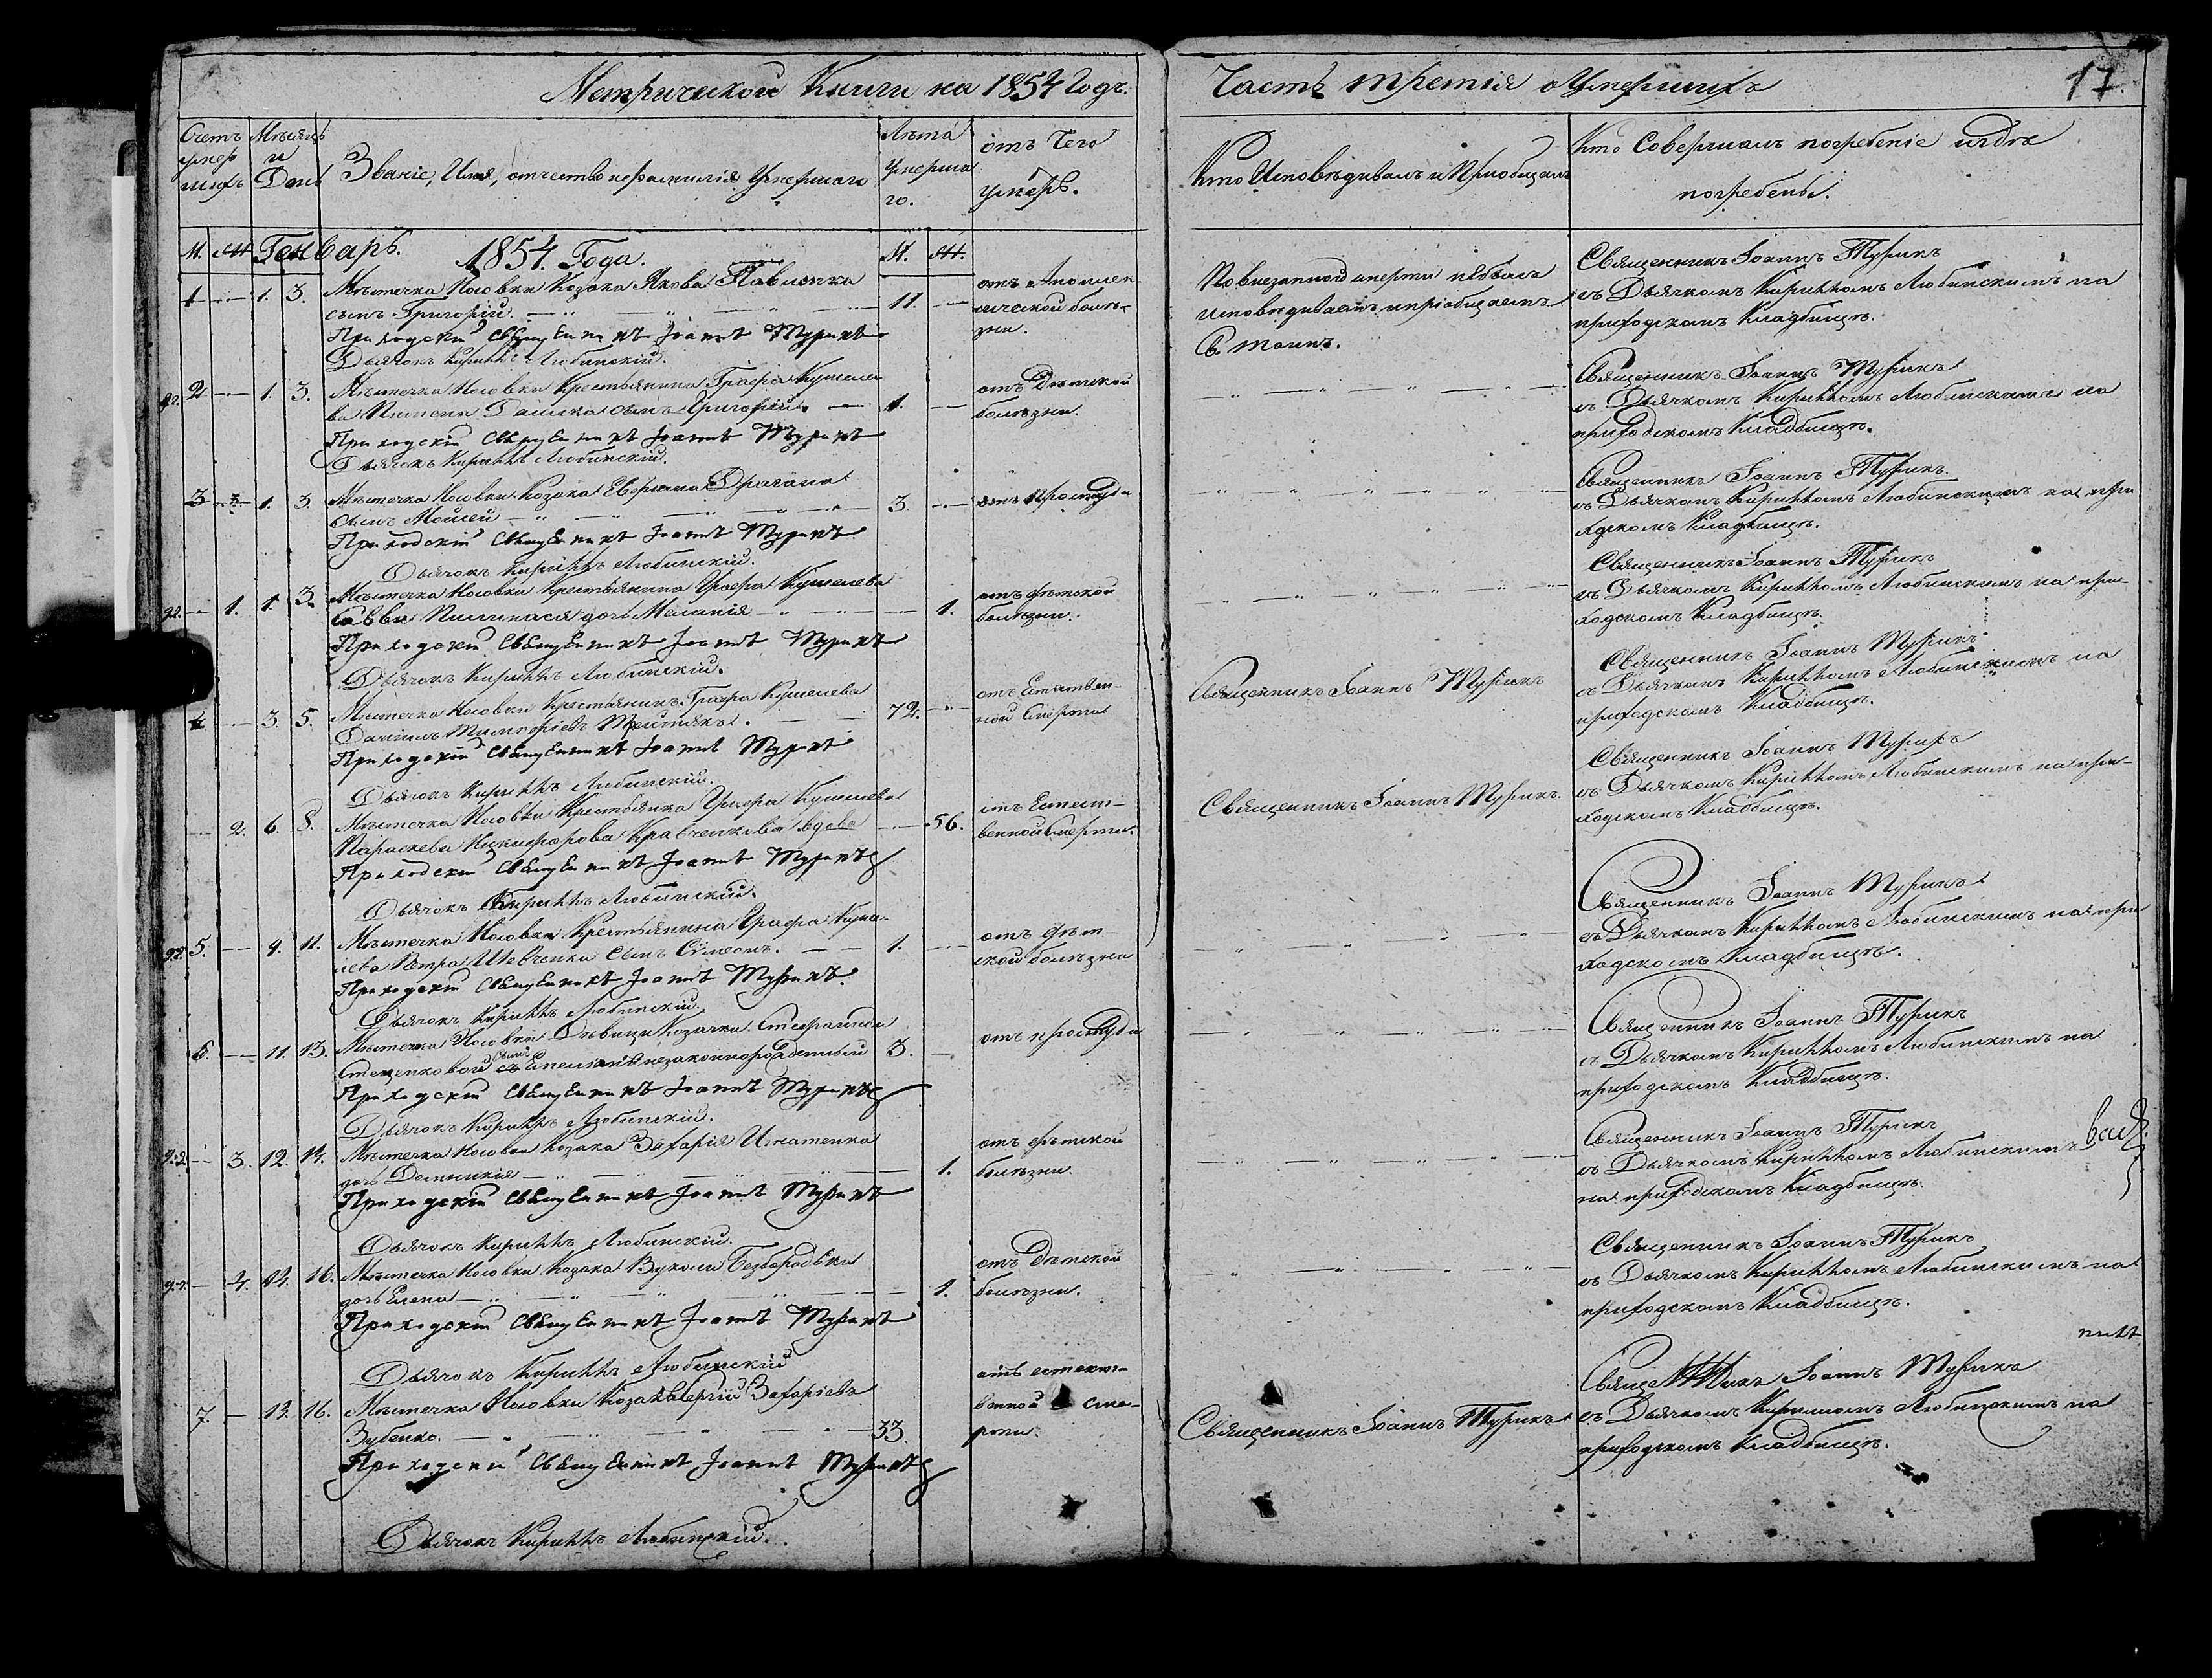 Метрической Книги на 1854 Годъ.
Счетъ умершихъ
Мѣсяцъ и День
Званіе, Имя, отчество и фамилія Умершаго
Лѣта Умершаго.
отъ Чего умеръ.
М. Ж. Генварь. 1854. Года. М. Ж.
1 — 1. 3. Мѣстечка Носовки Козака Якова Павлючка
сынъ Григорій. 11. отъ Апоплексической болѣзни.
Приходскій Священникъ Іоаннъ Турикъ
Дьячокъ Кириллъ Любинскій.
2 — 1. 3. Мѣстечка Носовки Крестьянина Графа Кушелева
Пимена сынъ Григорій. 1. отъ Дѣтской болѣзни.
Приходскій Священникъ Іоаннъ Турикъ
Дьячокъ Кириллъ Любинскій.
3 — 1. 3. Мѣстечка Носовки Козака Драгана
сынъ Моисей 3. отъ простуды
Приходскій Священникъ Іоаннъ Турикъ
Дьячокъ Кириллъ Любинскій.
— 1. 1. 3. Мѣстечка Носовки Крестьянина Графа Кушелева
Саввы дочь Меланія 1. отъ дѣтской болѣзни.
Приходскій Священникъ Іоаннъ Турикъ
Дьячокъ Кириллъ Любинскій.
4 — 3. 5. Мѣстечка Носовки Крестьянинъ Графа Кушелева
Даніилъ Тимофіевъ 72. отъ Естественной Смерти
Приходскій Священникъ Іоаннъ Турикъ
Дьячокъ Кириллъ Любинскій.
— 2. 6. 8. Мѣстечка Носовки Крестьянка Графа Кушелева
Параскева Никифорова Кравченкова вдова 56. отъ Естественной Смерти.
Приходскій Священникъ Іоаннъ Турикъ
Дьячокъ Кириллъ Любинскій.
5. — 9. 11. Мѣстечка Носовки Крестьянина Графа Кушелева
Петра Шевченка сынъ Сѵмеонъ. 1. отъ дѣтской болѣзни
Приходскій Священникъ Іоаннъ Турикъ
Дьячокъ Кириллъ Любинскій.
6. — 11. 13. Мѣстечка Носовки Дѣвицы Козачки Стефаниды
Стеценковой сынъ незаконнорожденный 3. отъ простуды
Приходскій Священникъ Іоаннъ Турикъ
Дьячокъ Кириллъ Любинскій.
— 3. 12. 14. Мѣстечка Носовки Козака Захарія Игнатенка
дочь Домникія 1. отъ дѣтской болѣзни.
Приходскій Священникъ Іоаннъ Турикъ
Дьячокъ Кириллъ Любинскій.
— 4. 14. 16. Мѣстечка Носовки Козака Вукола Безбородька
дочь Елена 1. отъ Дѣтской болѣзни.
Приходскій Священникъ Іоаннъ Турикъ
Дьячокъ Кириллъ Любинскій
7. — 13. 16. Мѣстечка Носовки Козакъ Сергій Захаріевъ
Зубенко. 33. отъ естественной смерти.
Приходскій Священникъ Іоаннъ Турикъ
Дьячокъ Кириллъ Любинскій.
Часть третія о Умершихъ
17
Кто Исповѣдивалъ и Пріобщалъ
Кто Совершалъ погребеніе и гдѣ погребены.
По внезапной смерти небылъ
исповѣдиваемъ и пріобщаемъ
Св. таинъ.
Священникъ Іоаннъ Турикъ
съ Дьячкомъ Кирилломъ Любинскимъ на
приходскомъ Кладбищѣ.
Священникъ Іоаннъ Турикъ
съ Дьячкомъ Кирилломъ Любинскимъ на
приходскомъ Кладбищѣ.
Священникъ Іоаннъ Турикъ.
съ Дьячкомъ Кирилломъ Любинскимъ на при
ходскомъ Кладбищѣ.
Священникъ Іоаннъ Турикъ
съ Дьячкомъ Кирилломъ Любинскимъ на при-
ходскомъ Кладбищѣ.
Священникъ Іоаннъ Турикъ
Священникъ Іоаннъ Турикъ
съ Дьячкомъ Кирилломъ Любинскимъ на
приходскомъ Кладбищѣ.
Священникъ Іоаннъ Турикъ.
Священникъ Іоаннъ Турикъ
съ Дьячкомъ Кирилломъ Любинскимъ на при-
ходскомъ Кладбищѣ.
Священникъ Іоаннъ Турикъ
съ Дьячкомъ Кирилломъ Любинскимъ на при
ходскомъ Кладбищѣ.
Священникъ Іоаннъ Турикъ
съ Дьячкомъ Кирилломъ Любинскимъ на
приходскомъ Кладбищѣ.
Священникъ Іоаннъ Турикъ
съ Дьячкомъ Кирилломъ Любинскимъ
на приходскомъ Кладбищѣ.
Священникъ Іоаннъ Турикъ
съ Дьячкомъ Кирилломъ Любинскимъ на
приходскомъ Кладбищѣ.
Священникъ Іоаннъ Турикъ
Священникъ Іоаннъ Турикъ
съ Дьячкомъ Кирилломъ Любинскимъ на
приходскомъ Кладбищѣ.